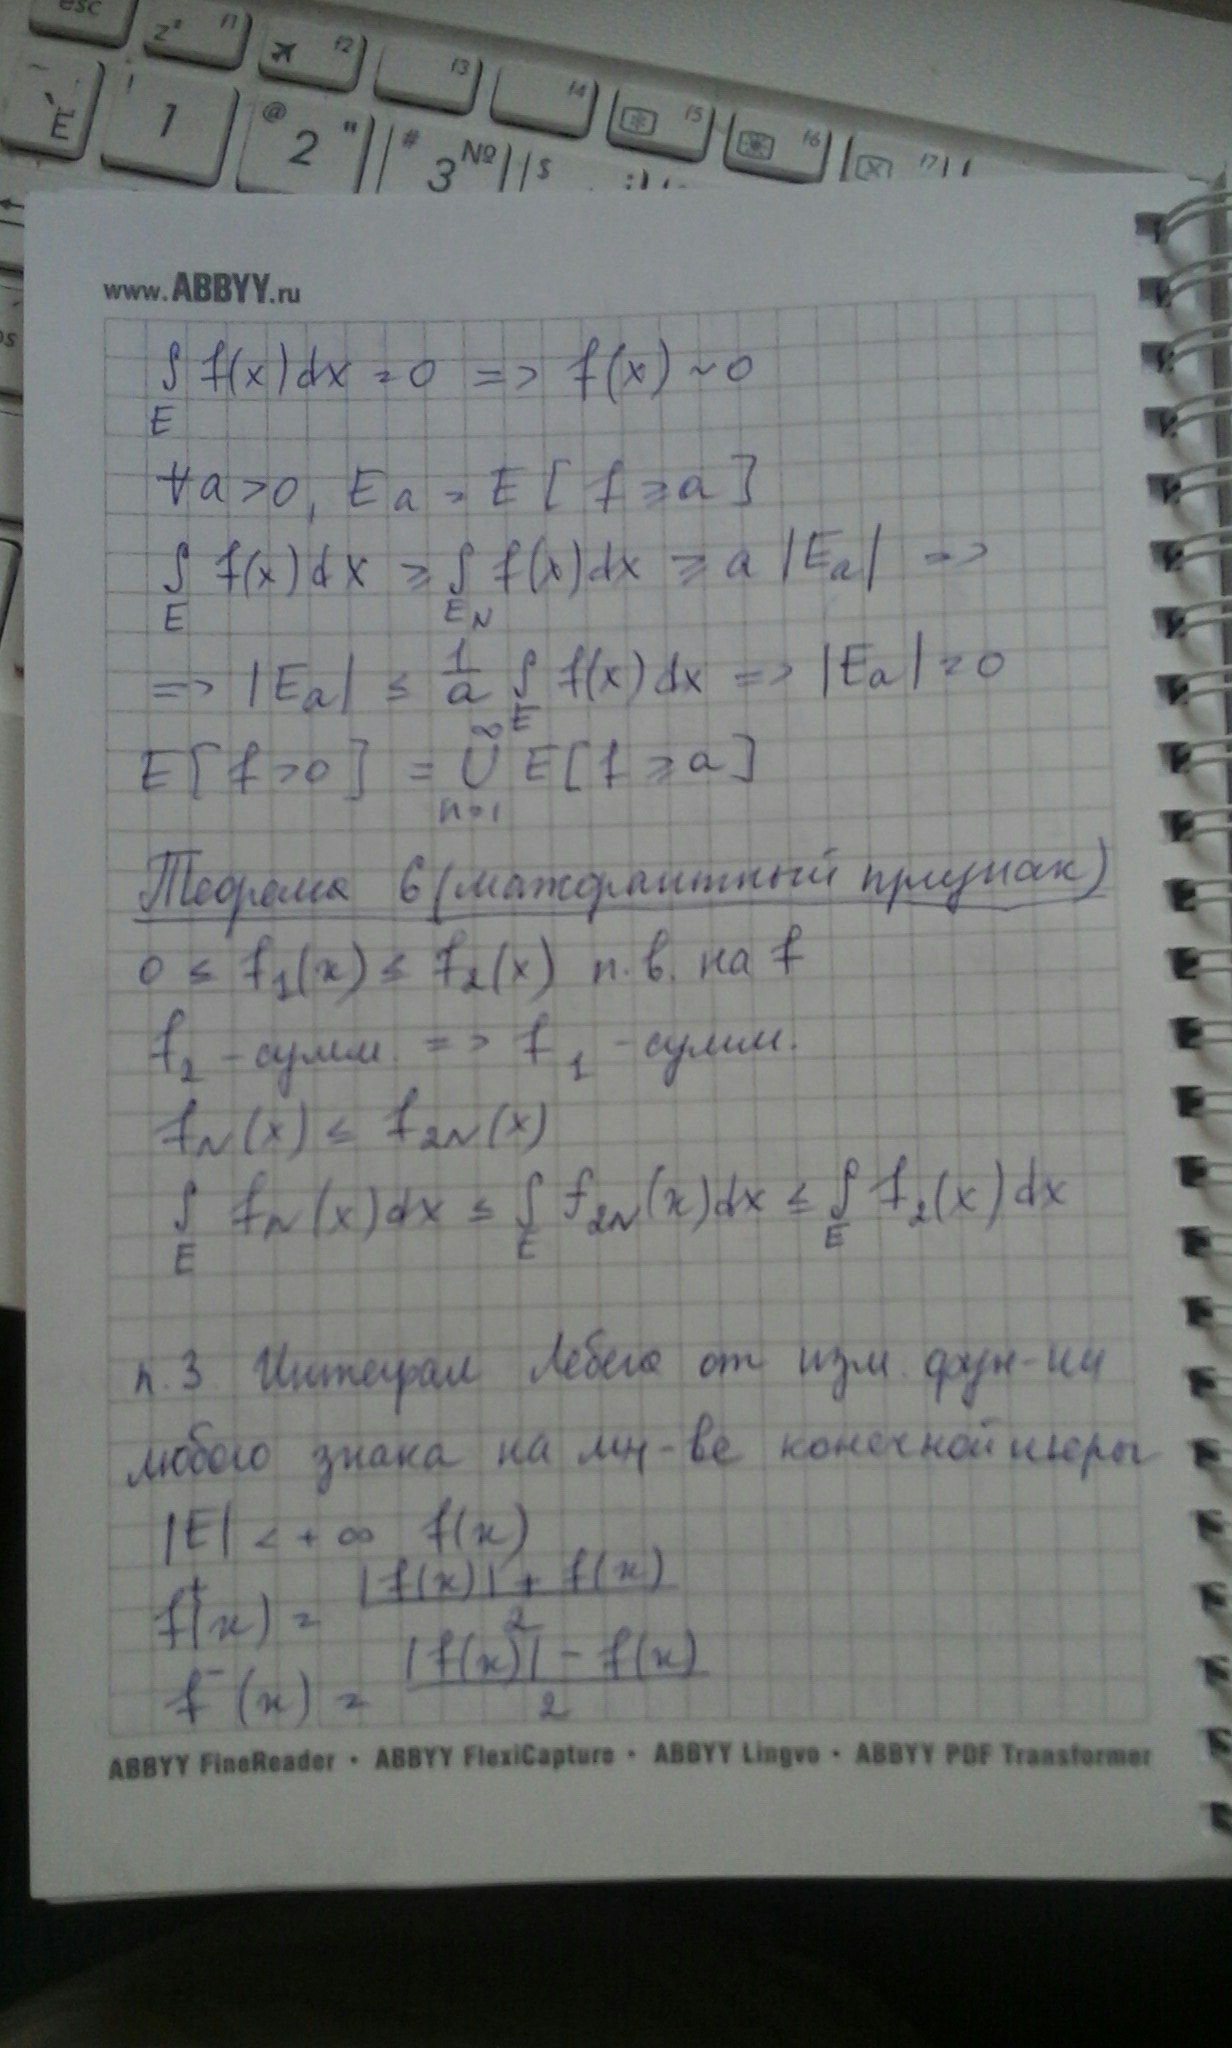 esc
z² f1 f2 f3 f4 f5 f6 f7
Ё 1 @ 2 " # 3 № $
www.ABBYY.ru
∫_E f(x)dx = 0 => f(x) ~ 0
∀a>0, E_a = E[f ≥ a]
∫_E f(x)dx ≥ ∫_{E_N} f(x)dx ≥ a|E_a| =>
=> |E_a| ≤ 1/a ∫_E f(x)dx => |E_a| = 0
E[f>0] = ∪_{n=1}^∞ E[f ≥ a]
Теорема 6 (мажорантный признак)
0 ≤ f_1(x) ≤ f_2(x) п.в. на f
f_2 - сумм. => f_1 - сумм.
f_N(x) ≤ f_{2N}(x)
∫_E f_N(x)dx ≤ ∫_E f_{2N}(x)dx ≤ ∫_E f_2(x)dx
п.3 Интеграл Лебега от изм. фун-ии
любого знака на мн-ве конечной меры
|E| < +∞ f(x)
f^+(x) = (|f(x)| + f(x))/2
f^-(x) = (|f(x)| - f(x))/2
ABBYY FineReader • ABBYY FlexiCapture • ABBYY Lingvo • ABBYY PDF Transformer